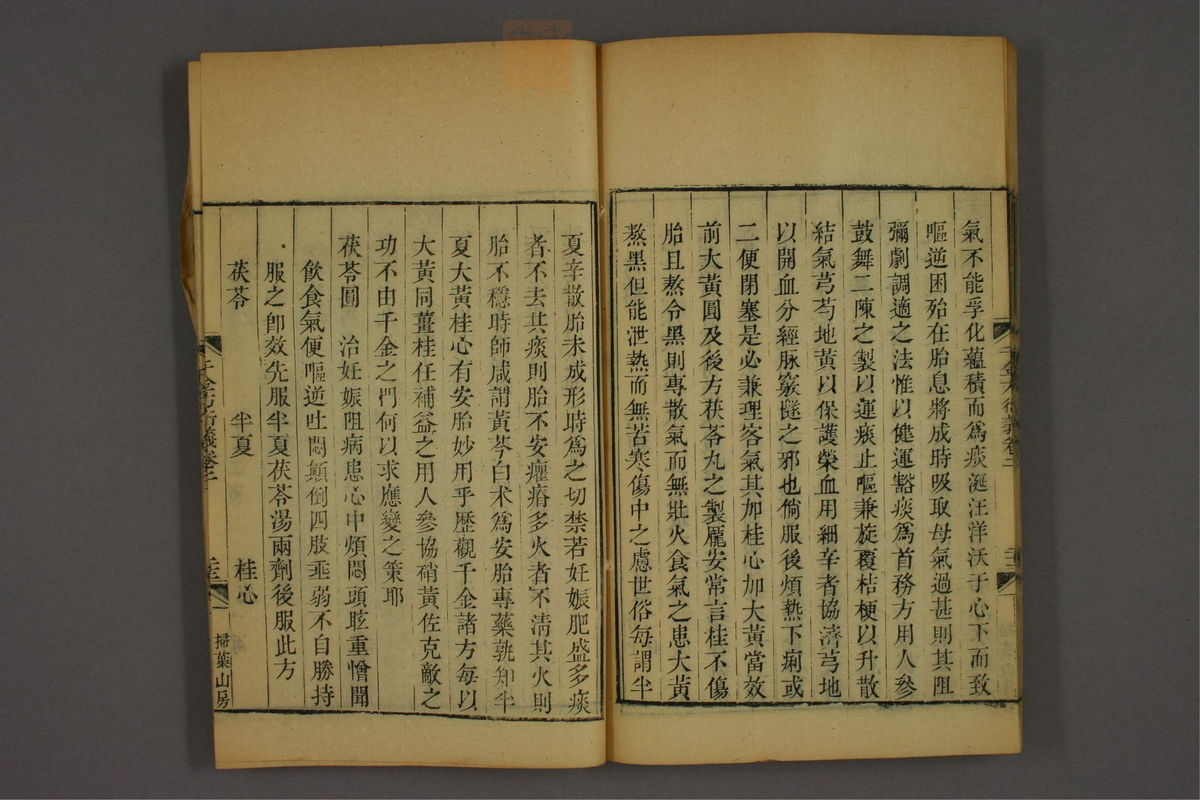 氣不能孚化蘊積而爲痰涎汪洋沃于心下而致
嘔逆困殆在胎息將成時吸取母氣過甚則其阻
彌劇調適之法惟以健運豁痰爲首務方用人參
鼓舞二陳之製以運痰止嘔兼旋覆桔梗以升散
結氣芎芍地黃以保護榮血用細辛者協濟芎地
以開血分經脉窾髓之邪也倘服後煩熱下痢或
二便閉塞是必兼理客氣其加桂心加大黃當效
前大黃圓及後方茯苓丸之製龐安常言桂不傷
胎且熬令黑則專散氣而無壯火食氣之患大黃
熬黑但能泄熱而無苦寒傷中之慮世俗每謂半
夏辛散胎未成形時爲之切禁若妊娠肥盛多痰
者不去其痰則胎不安癯瘠多火者不清其火則
胎不穩時師咸謂黃芩白术爲安胎專藥孰知半
夏大黃桂心有安胎妙用乎歷觀千金諸方每以
大黃同薑桂任補益之用人參協硝黃佐克敵之
功不由千金之門何以求應變之策耶
茯苓圓　治妊娠阻病患心中煩悶頭眩重憎聞
飲食氣便嘔逆吐悶顛倒四肢垂弱不自勝持
服之卽效先服半夏茯苓湯兩劑後服此方
茯苓　半夏　桂心
千金方衍義卷二
掃葉山房